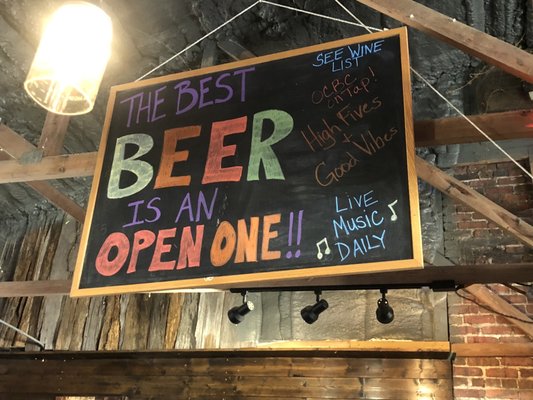 THE BEST
BEER
IS AN
OPEN ONE!!
SEE WINE
LIST
OCBC
on Tap!
High Fives
+
Good Vibes
LIVE
MUSIC
DAILY